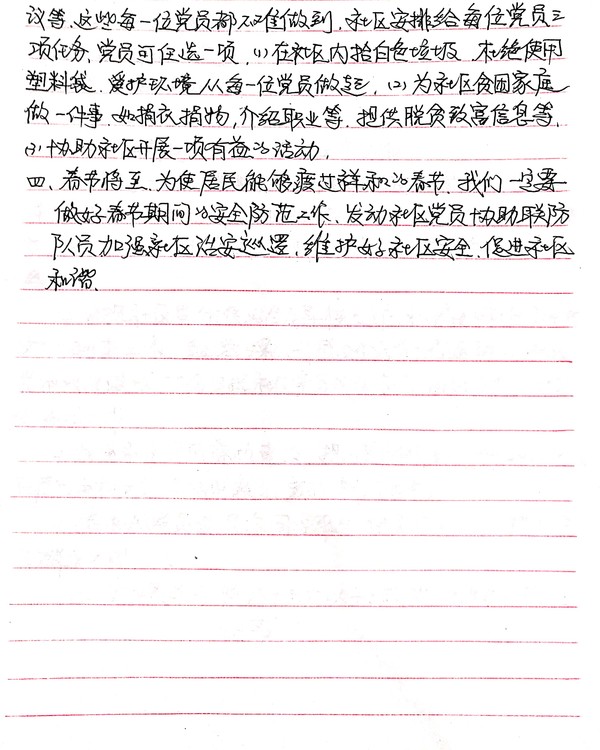 议等、这些每一位党员都不难做到，社区安排给每位党员三
项任务、党员可任选一项，(1)在社区内拾白色垃圾、杜绝使用
塑料袋、爱护环境从每一位党员做起，(2)为社区贫困家庭
做一件事、如捐衣捐物，介绍职业等、提供脱贫致富信息等，
(3)协助社区开展一项有益的活动，
四、春节将至、为使居民能够度过祥和的春节、我们一定要
做好春节期间的安全防范工作、发动社区党员协助联防
队员加强社区治安巡逻、维护好社区安全、促进社区
和谐、